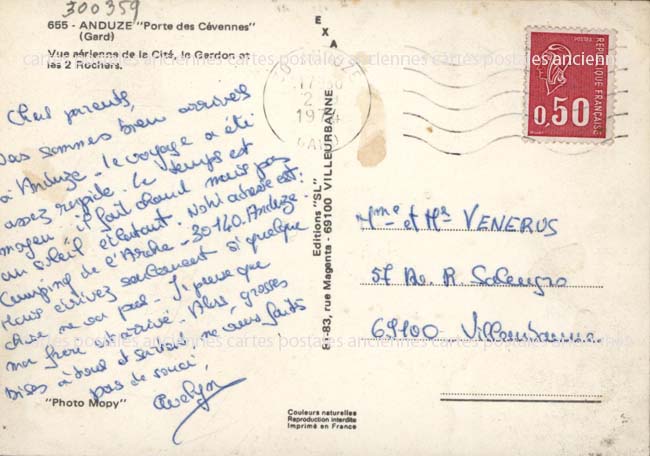 300359
655 - ANDUZE "Porte des Cévennes"
(Gard)
Vue aérienne de la Cité, le Gardon et
les 2 Rochers.
Chers parents,
Nous sommes bien arrivés
à Anduze. le voyage a été
assez rapide. le temps est
moyen il fait chaud mais pas
un soleil éclatant. Notre adresse est:
Camping de l'Arche - 30140. Anduze.
Vous écrivez seulement si quelque
chose ne va pas. J'espère que
mon frère est arrivé. Alors, grosses
bises à tous et surtout ne vous faites
pas de souci,
Evelyn
"Photo Mopy"
EXA
Editions "SL"
81-83, rue Magenta - 69100 VILLEURBANNE
Couleurs naturelles
Reproduction interdite
Imprimé en France
17
2
1974
GARD
POSTES
REPUBLIQUE FRANÇAISE
0,50
Mme et Mr VENERUS
57 Av. R. Salengro
69100 Villeurbanne
cartes postales anciennes cartes postales anciennes